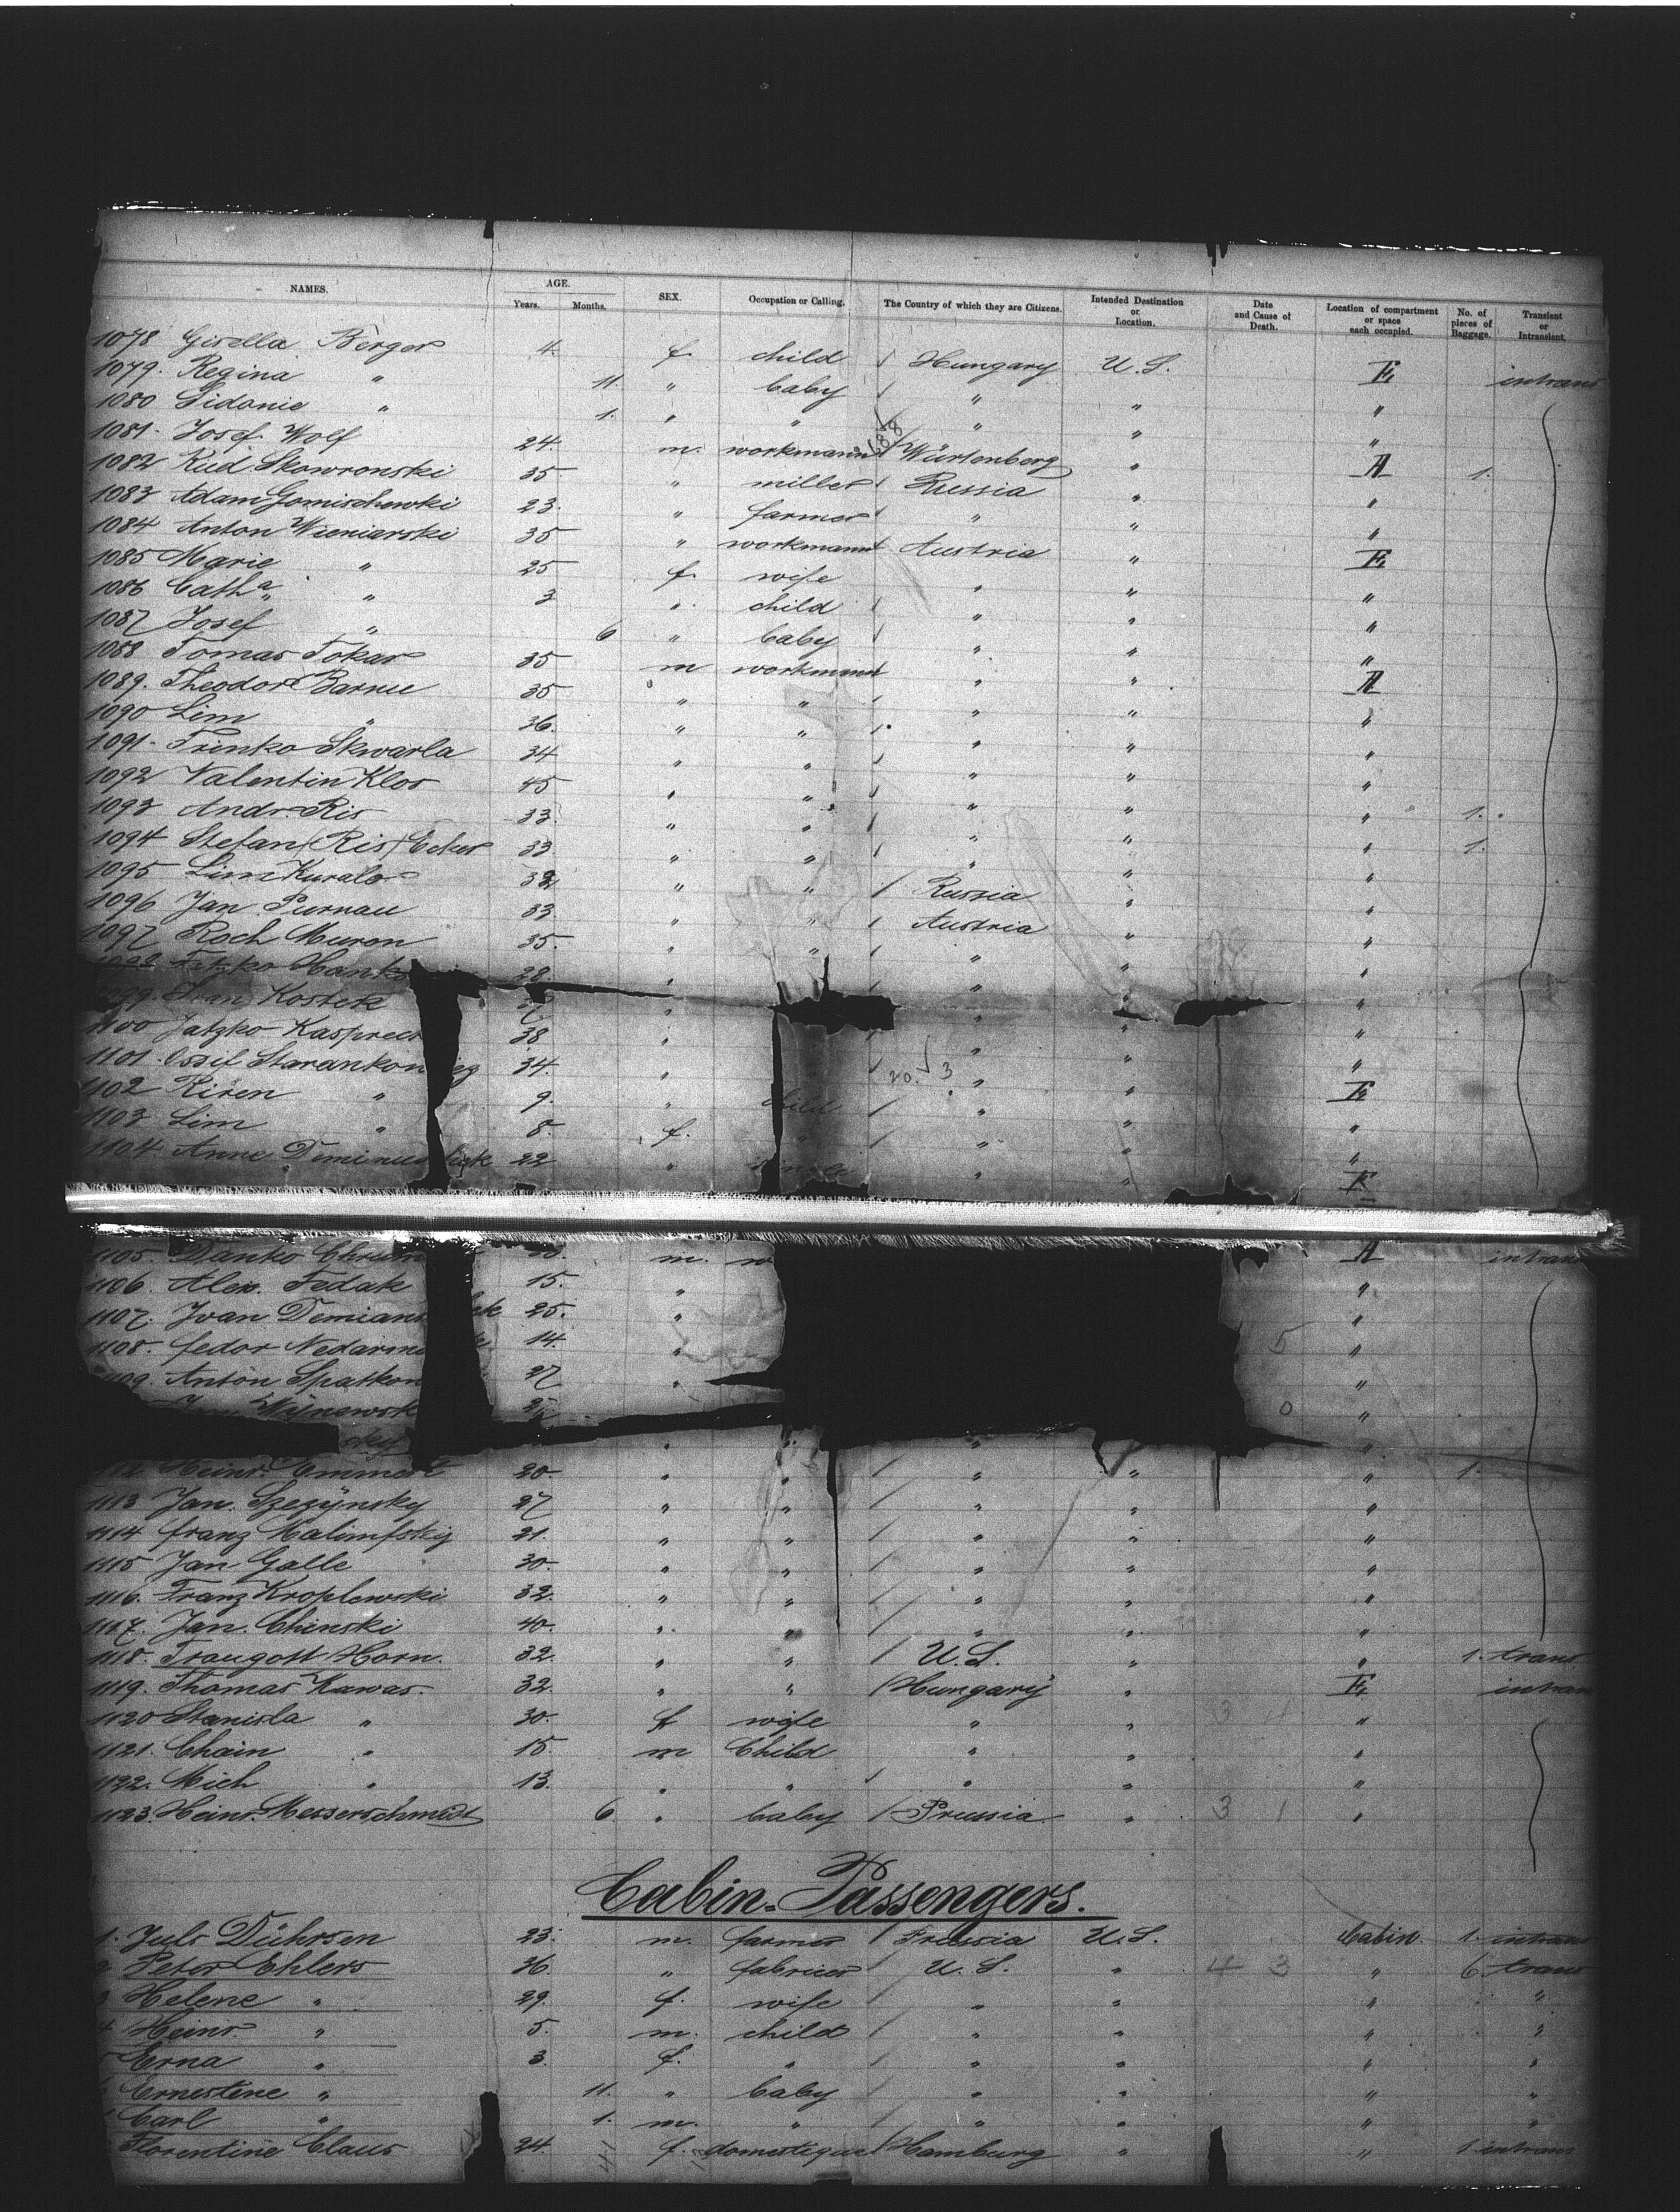 NAMES. AGE. Years. Months. SEX. Occupation or Calling. The Country of which they are Citizens. Intended Destination or Location. Date and Cause of Death. Location of compartment or space each occupied. No. of pieces of Baggage. Transient or Intransient.
1078 Gisella Berger 4. f. child Hungary U.S. E. intrans
1079. Regina " 11. " baby " " "
1080 Sidonie " 1. " " " " "
1081. Josef Wolf 24. m. workmann Würtenberg " A 1.
1082 Rud Skowronski 35 " miller Russia " "
1083 Adam Gomischewski 23. " farmer " " "
1084 Anton Wieniarski 35 " workmann Austria " E.
1085 Marie " 25 f. wife " " "
1086 Cath.a " 3 " child " " "
1087 Josef " 6 " baby " " "
1088 Tomas Tokar 35 m workmann " " A
1089. Theodor Barnu 35 " " " " "
1090 Sim " 36. " " " " "
1091. Trinko Skwarla 34 " " " " "
1092 Valentin Klos 45 " " " " " 1.
1093 Andr. Ris 33 " " " " " 1.
1094 Stefan (Ris) Ecker 33 " " " " "
1095 Sim Kuralo 32 " " Russia " "
1096 Jan Purnau 33 " " Austria " "
1097 Roch Muron 35. " " " " "
Hank 28. " " " "
Kostek " " " "
1100 Jatzko Kasprec 38 " " " "
1101. Ossif Starankon 34. " " " E.
1102 Kiren " 9. " child " " "
1103 Sim " 8. f. " " " "
1104 Anne 22 " " " E
1105. Danko m. A intrans
1106. Alex. Fedak 15. " "
1107. Ivan Demians ek 25. " "
1108. Fedor 14. " 5 "
Anton Spatkon 27 " "
Wijnewsk 0 "
sky " " " "
Heinr. Emmert 20. " " " " " 1.
1113 Jan. Szezÿnsky 27 " " " " "
1114 Franz Kalimfskÿ 21. " " " " "
1115 Jan Galle 30. " " " " "
1116. Franz Kroplewski 32. " " " " "
1117. Jan. Chinski 40. " " " " "
1118. Traugott Horn. 32. " " U.S. " " 1. trans
1119. Thomas Kawas. 32. " " Hungarÿ " E. intrans
1120 Stanisla " 30. f wife " " "
1121. Chain " 15. m Child " " "
1122. Mich " 13. " " " " "
1123. Heinr. Messerschmidt 6. " baby Prussia " 3 1 "
Cabin-Passengers.
1. Juls Dührsen 23. m. farmer Prussia U.S. Cabin. 1. intrans
2 Peter Ehlers 36. " fabricer U.S. " 4 3 " 6. trans
3 Helene " 29. f. wife " " " "
4 Heinr. " 5. m. child " " " "
5 Erna " 3. f. " " " " "
Ernestine " 11. " baby " " " "
Carl " 1. m. " " " " "
Florentine Claus 24. f. domestique Hamburg " " 1 intrans